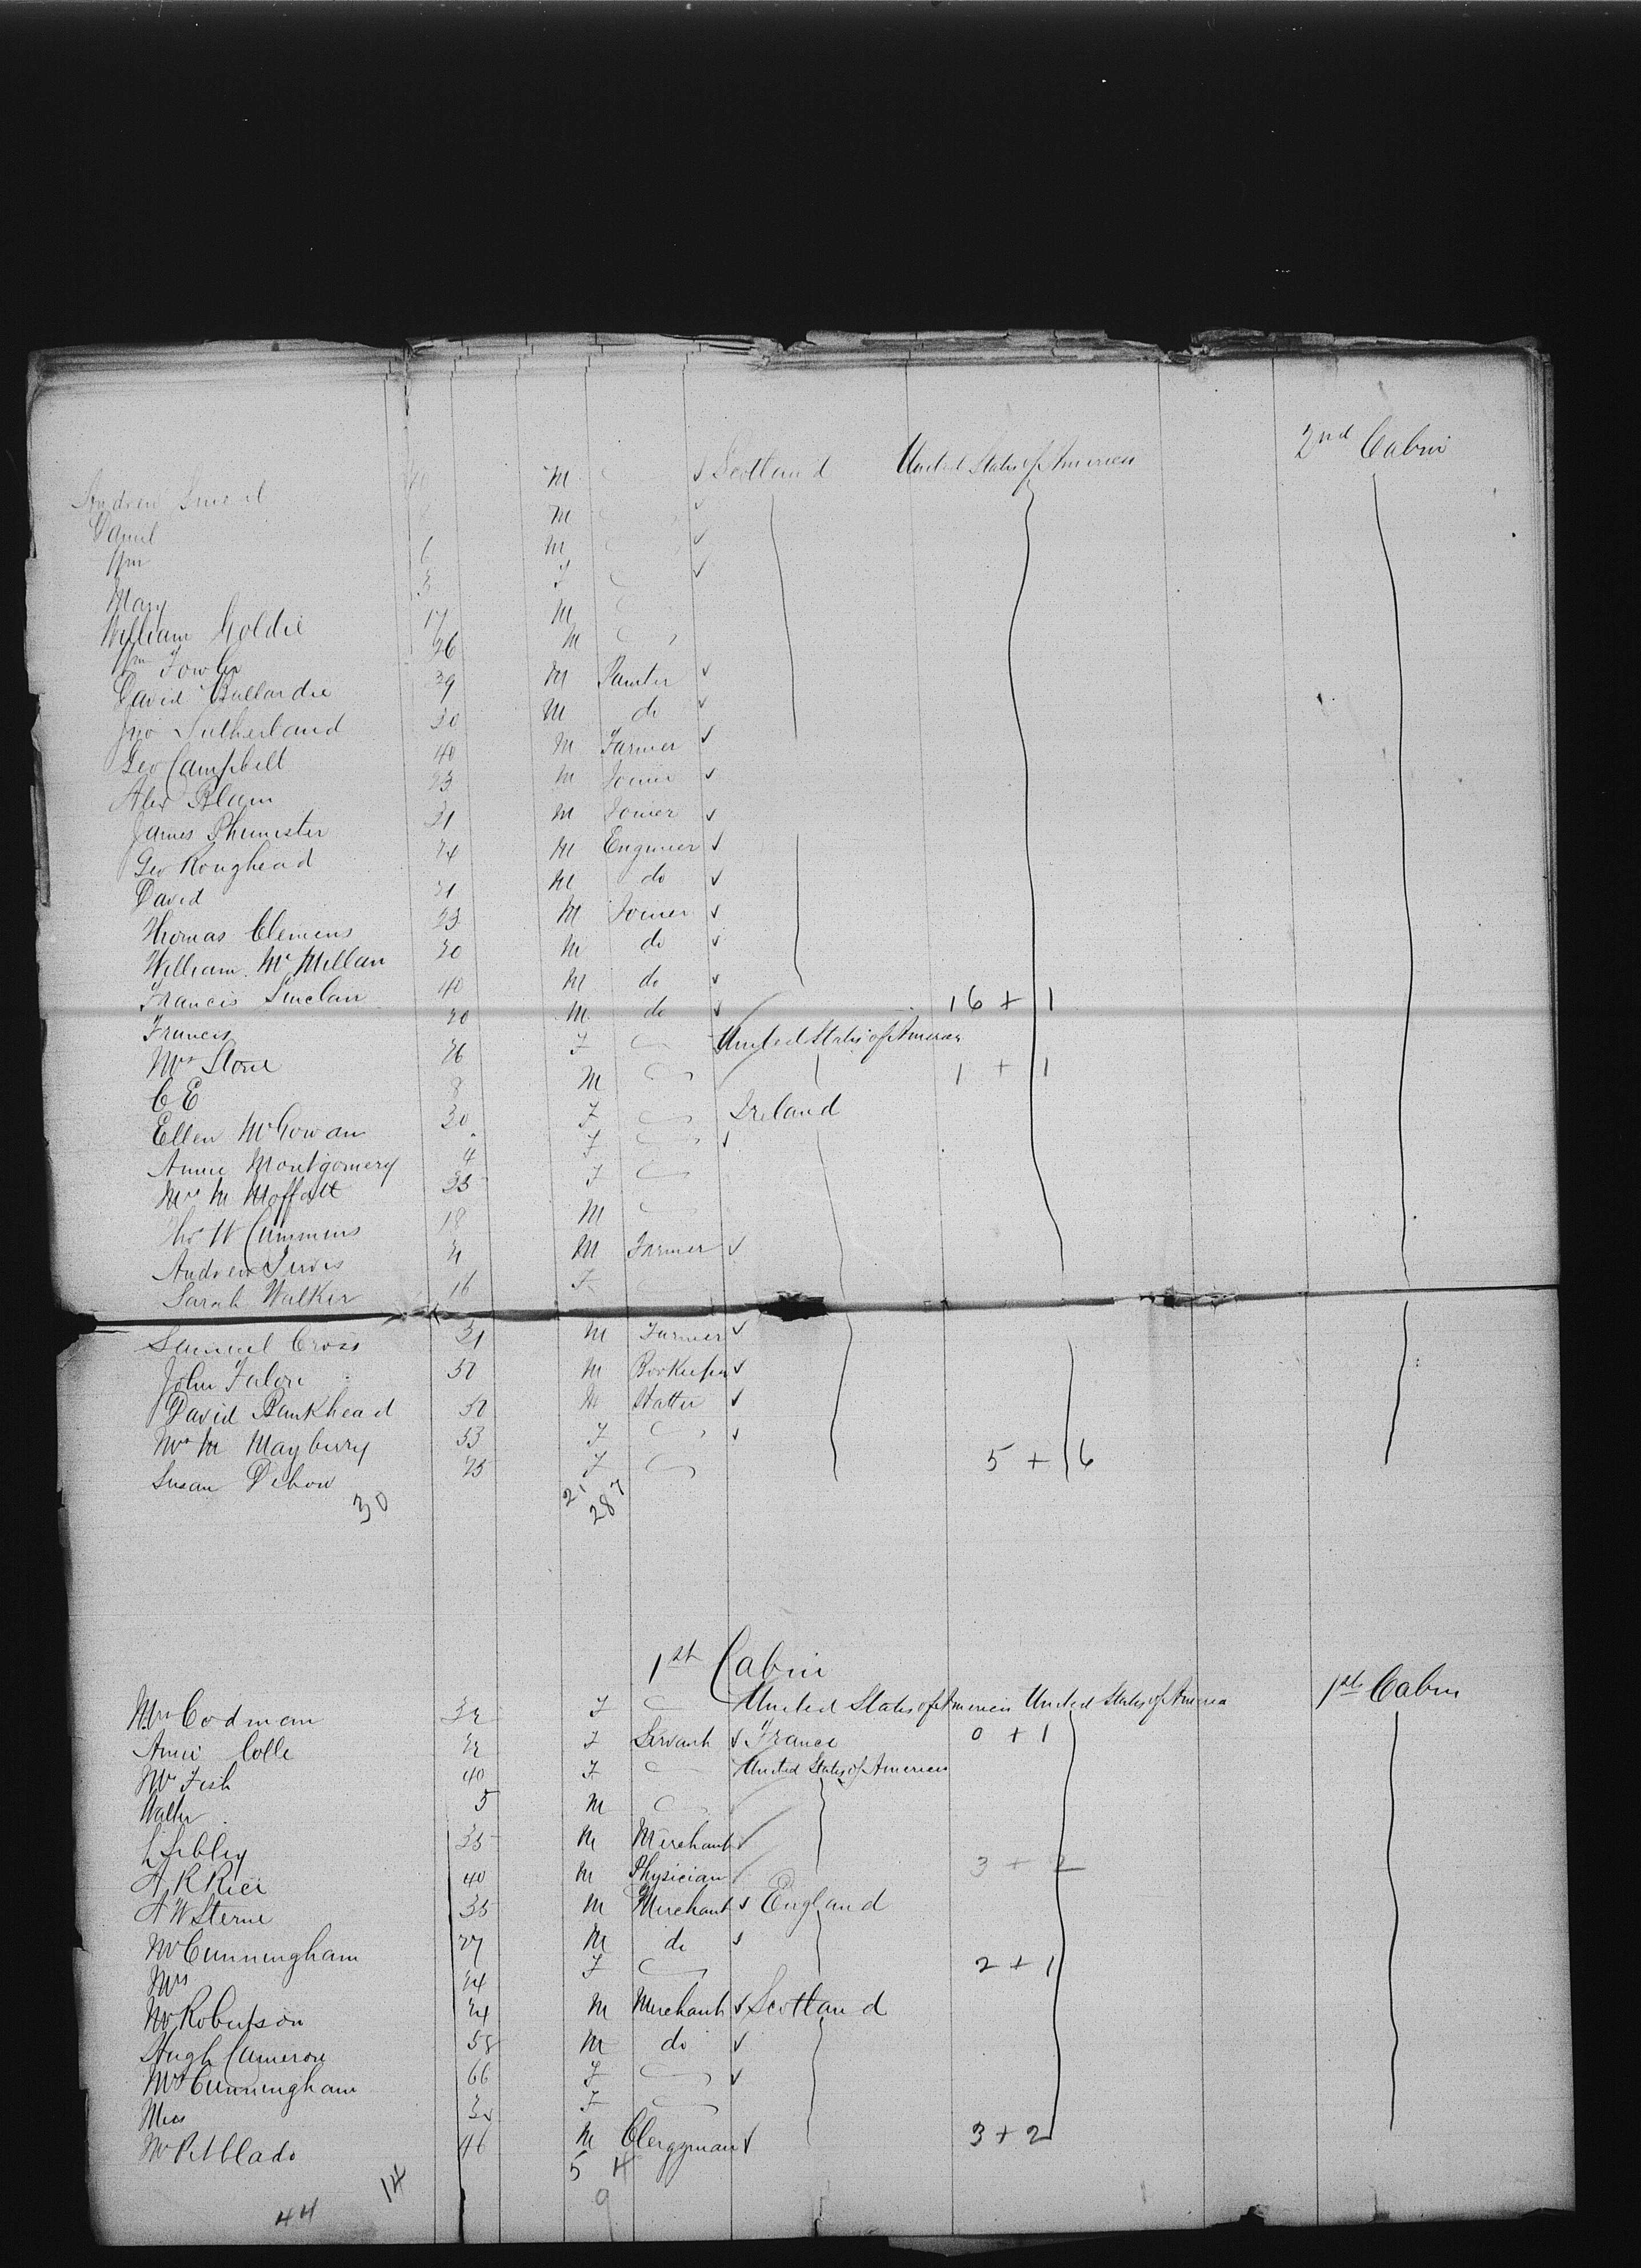 Andrew M Scotland United States of America 2nd Cabin
Daniel M
Wm 6 M
Mary 3 F
William Goldie 17 M
Wm Fowler 26 M
David Ballardie 39 M Painter
Jno Sutherland 20 M do
Geo Campbell 40 M Farmer
Alex 23 M Joiner
James Phimister 21 M Joiner
Geo Roughead 24 M Engineer
David 21 M do
Thomas Clemens 23 M Joiner
William McMillan 20 M do
Francis Sinclair 40 M do
Francis 20 M do 16 + 1
Mrs Stone 26 F United States of America
C E 8 M 1 + 1
Ellen McGowan 30 F Ireland
Annie Montgomery F
Mrs M Moffatt 35 F
Thos W Cummins 18 M
Andrew 21 M Farmer
Sarah Walker 16 F
Samuel Cross 21 M Farmer
John 50 M Bookeeper
David Bankhead 50 M Hatter
Mrs M Maybury 53 F
Susan Debow 25 F 5 + 6
30 21 7
28
1st Cabin
Mrs Codman 32 F United States of America United States of America 1st Cabin
Annie Colle 22 F Servant France 0 + 1
Mrs Fish 40 F United States of America
Walter 5 M
L Sibley 35 M Merchant
A R Rice 40 M Physician 3 + 2
A W Sterne 35 M Merchant England
Mr Cunningham 27 M do
Mrs 24 F 2 + 1
Mr Robertson 24 M Merchant Scotland
Hugh Cameron 58 M do
Mrs Cunningham 66 F
Miss F
Mr 46 M Clergyman 3 + 2
14 5 4
44 9